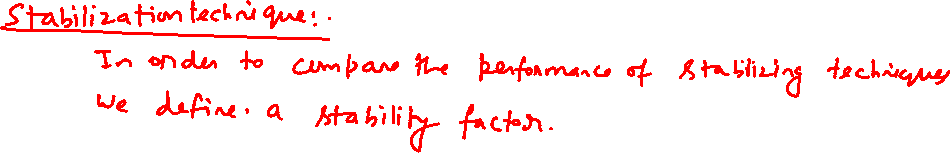 Stabilization technique:.
In order to compare the performance of stablizing techniques
we define. a stability factor.